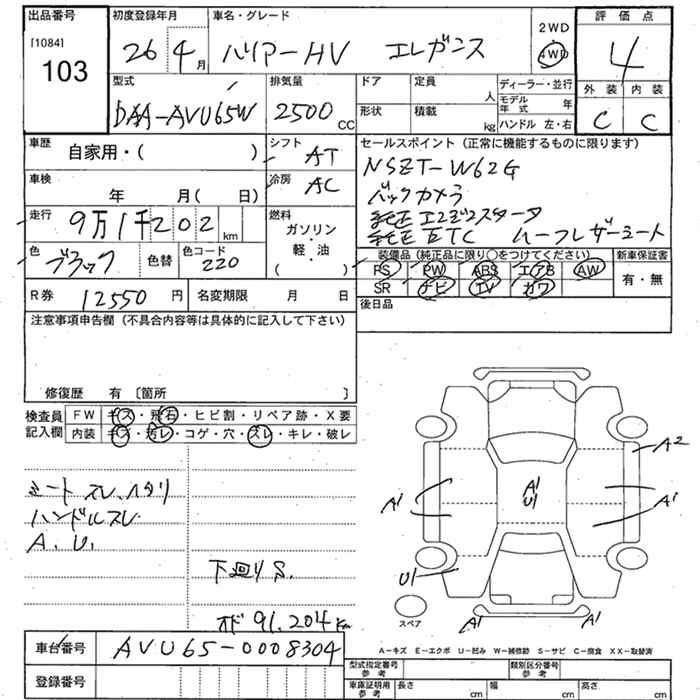 出品番号 初度登録年月 車名・グレード 2WD 4WD 評価点
[1084]
103 26 4月 ハリアーHV エレガンス 4
型式 排気量 ドア 定員 人 ディーラー・並行 外装 内装
DAA-AVU65W 2500cc 形状 積載 kg モデル年式 年 ハンドル 左・右 C C
車歴 自家用・( ) シフト AT セールスポイント(正常に機能するものに限ります)
NSZT-W62G
車検 年 月( 日) 冷房 AC バックカメラ
走行 9万1千202km 燃料 ガソリン・軽・油 ( ) 純正エンジンスターター
純正ETC ハーフレザーシート
色 ブラック 色替 色コード 220 装備品(純正品に限り○をつけてください) 新車保証書
PS PW ABS エアB AW 有・無
SR ナビ TV カワ
R券 12550円 名変期限 月 日 後日品
注意事項申告欄(不具合内容等は具体的に記入して下さい)
修復歴 有 〔箇所 〕
検査員 FW キズ・飛石・ヒビ割・リペア跡・X要
記入欄 内装 キズ・汚レ・コゲ・穴・スレ・キレ・破レ
A2
A1 A1 U1 A1
シートスレ、ヘタリ
ハンドルスレ
A.U.
下廻りS.
U1
オド 91.204Km
スペア A1 A1
車台番号 AVU65-0008304
A-キズ E-エクボ U-凹み W-補修跡 S-サビ C-腐食 XX-取替済
登録番号
型式指定番号 参考 類別区分番号 参考
車庫証明用 参考 長さ cm 幅 cm 高さ cm